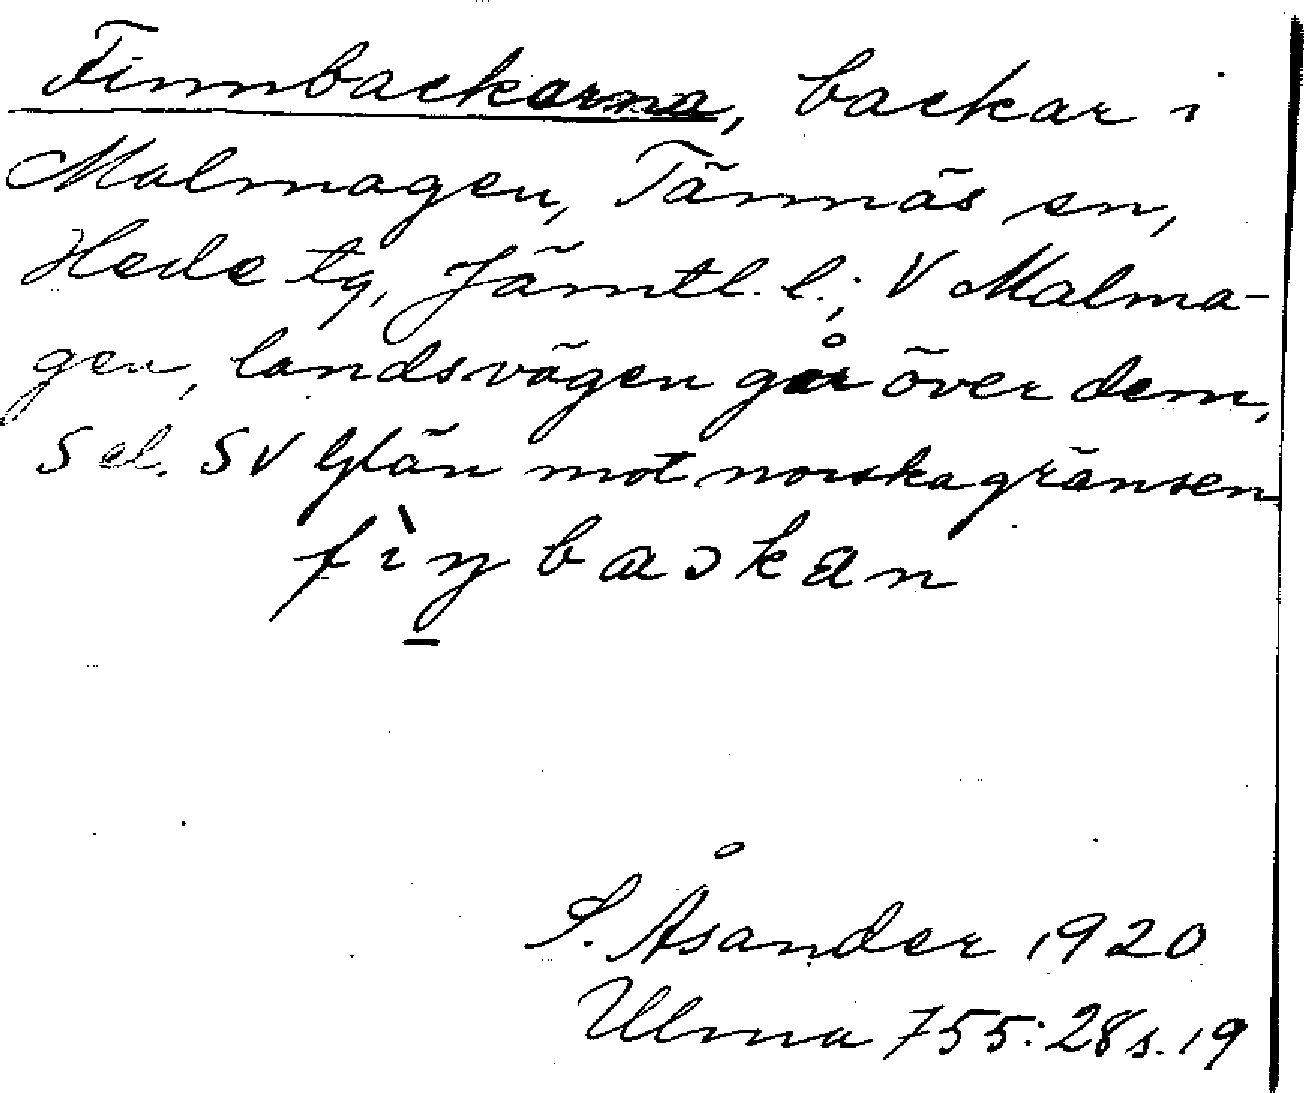 Finnbackarna, backar i
Malmagen, Tännäs sn,
Hede tg, Jämtl. l.; V Malma-
gen, landsvägen går över dem,
S el. SV Glän mot norska gränsen
fìnbaɔkan
S. Åsander 1920
Ulma 755:28 s. 19